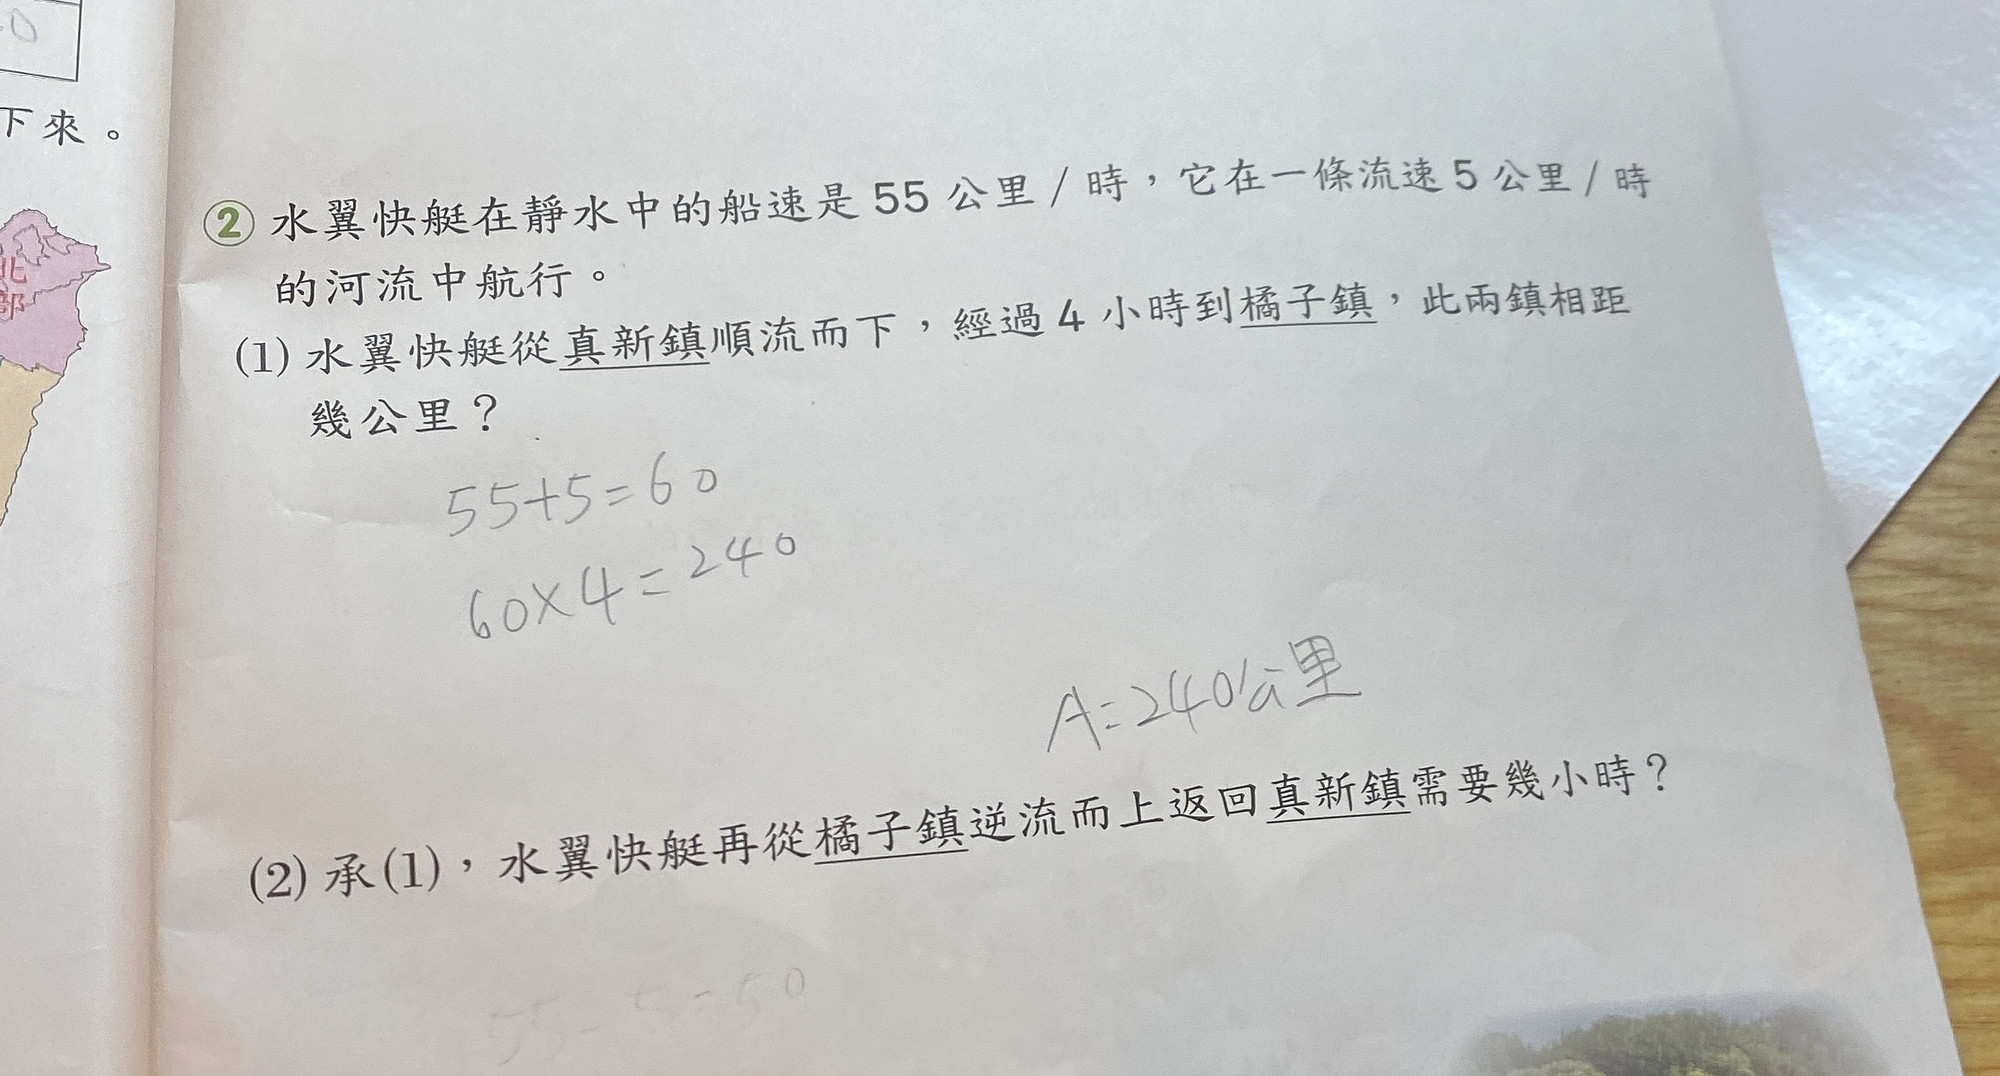 下來。
北
部
② 水翼快艇在靜水中的船速是 55 公里 / 時，它在一條流速 5 公里 / 時
的河流中航行。
(1) 水翼快艇從真新鎮順流而下，經過 4 小時到橘子鎮，此兩鎮相距
幾公里？
55+5=60
60×4=240
A=240公里
(2) 承(1)，水翼快艇再從橘子鎮逆流而上返回真新鎮需要幾小時？
55-5=50